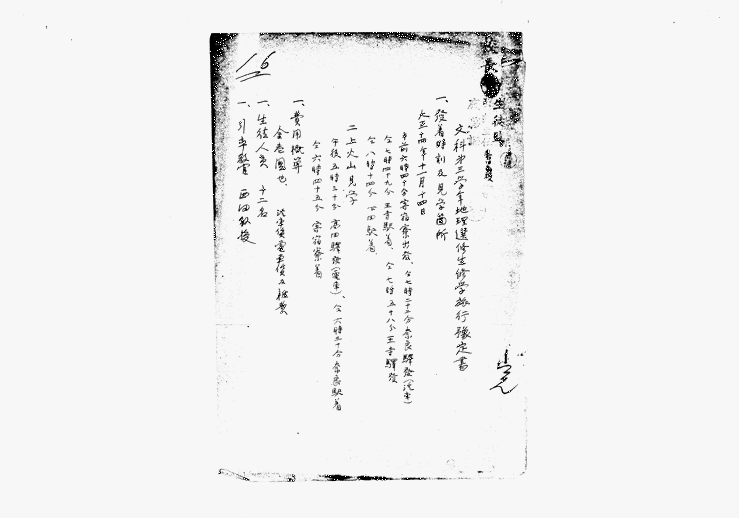 生徒監
文科第三学年地理選修生修学旅行豫定書
一、発着時刻及見学箇所
大正十四年十一月十四日
午前六時四十分寄宿寮出発、仝七時二十分奈良驛発(汽車)
仝七時四十九分王寺駅着、仝七時五十八分王寺驛発
仝八時十四分下田駅着
二上火山見学
午後五時三十分高田驛発(電車)、仝六時三十分奈良駅着
仝六時四十五分寄宿寮着
一、費用概算
金壱圓也、汽車賃電車賃及雑費
一、生徒人員 十二名
一、引率教官 西田教授
16